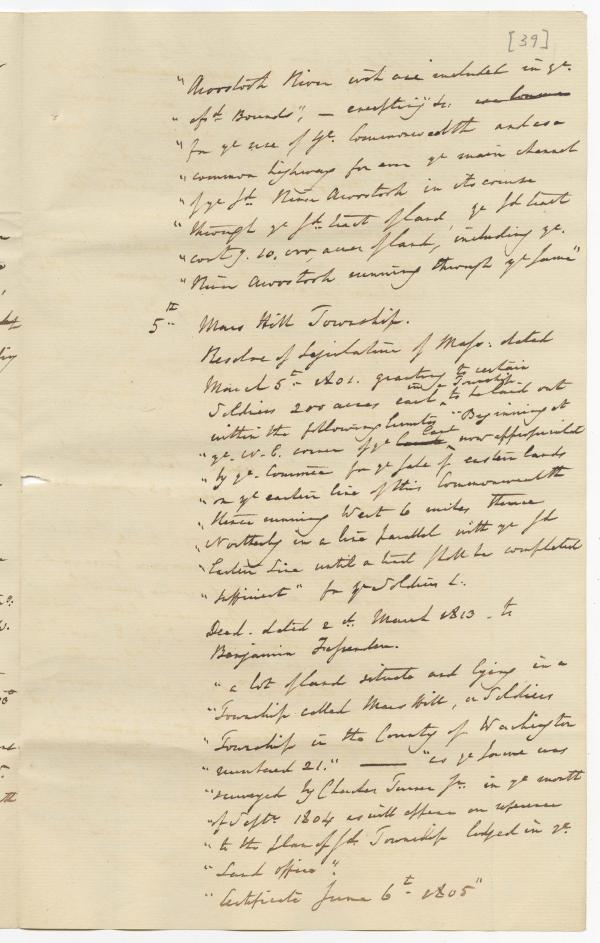 [39]
"Aroostook River wch are included in ye.
"afsd. Bounds", — excepting "&c.
"for ye use of ye. Commonwealth and as a
"common highway for ever ye main channel
"of ye sd. River Aroostook in its course
"through ye sd. tract of land, ye sd tract
"contg. 10,000, acres of land, including ye.
"River Aroostook running through ye same"
5th Mars Hill Township.
Resolve of Legislature of Mass: dated
March 5th 1801. granting to certain
Soldiers 200 acres each in a Township to be laid out
within the following limits "Beginning at
"ye. N. E. corner of ye land now appropriated
"by ye. Commee for ye sale of eastern lands
"on ye eastern line of this Commonwealth
"thence running West 6 miles thence
"Northerly in a line parallel with ye sd
"Eastern Line until a tract shall be completed
"sufficient" for ye Soldiers &.
Deed. dated 2d. March 1813 - to
Benjamin Fessenden.
"a lot of land situate and lying in a
"Township called Mars Hill, a Soldiers
"Township in the County of Washington
"numbered 21." — "as ye same was
"surveyed by Charles Turner Jr. in ye month
"of Septr. 1804 as will appear on reference
"to the plan of sd. Township lodged in ye.
"Land office".
"Certificate June 6th 1805"